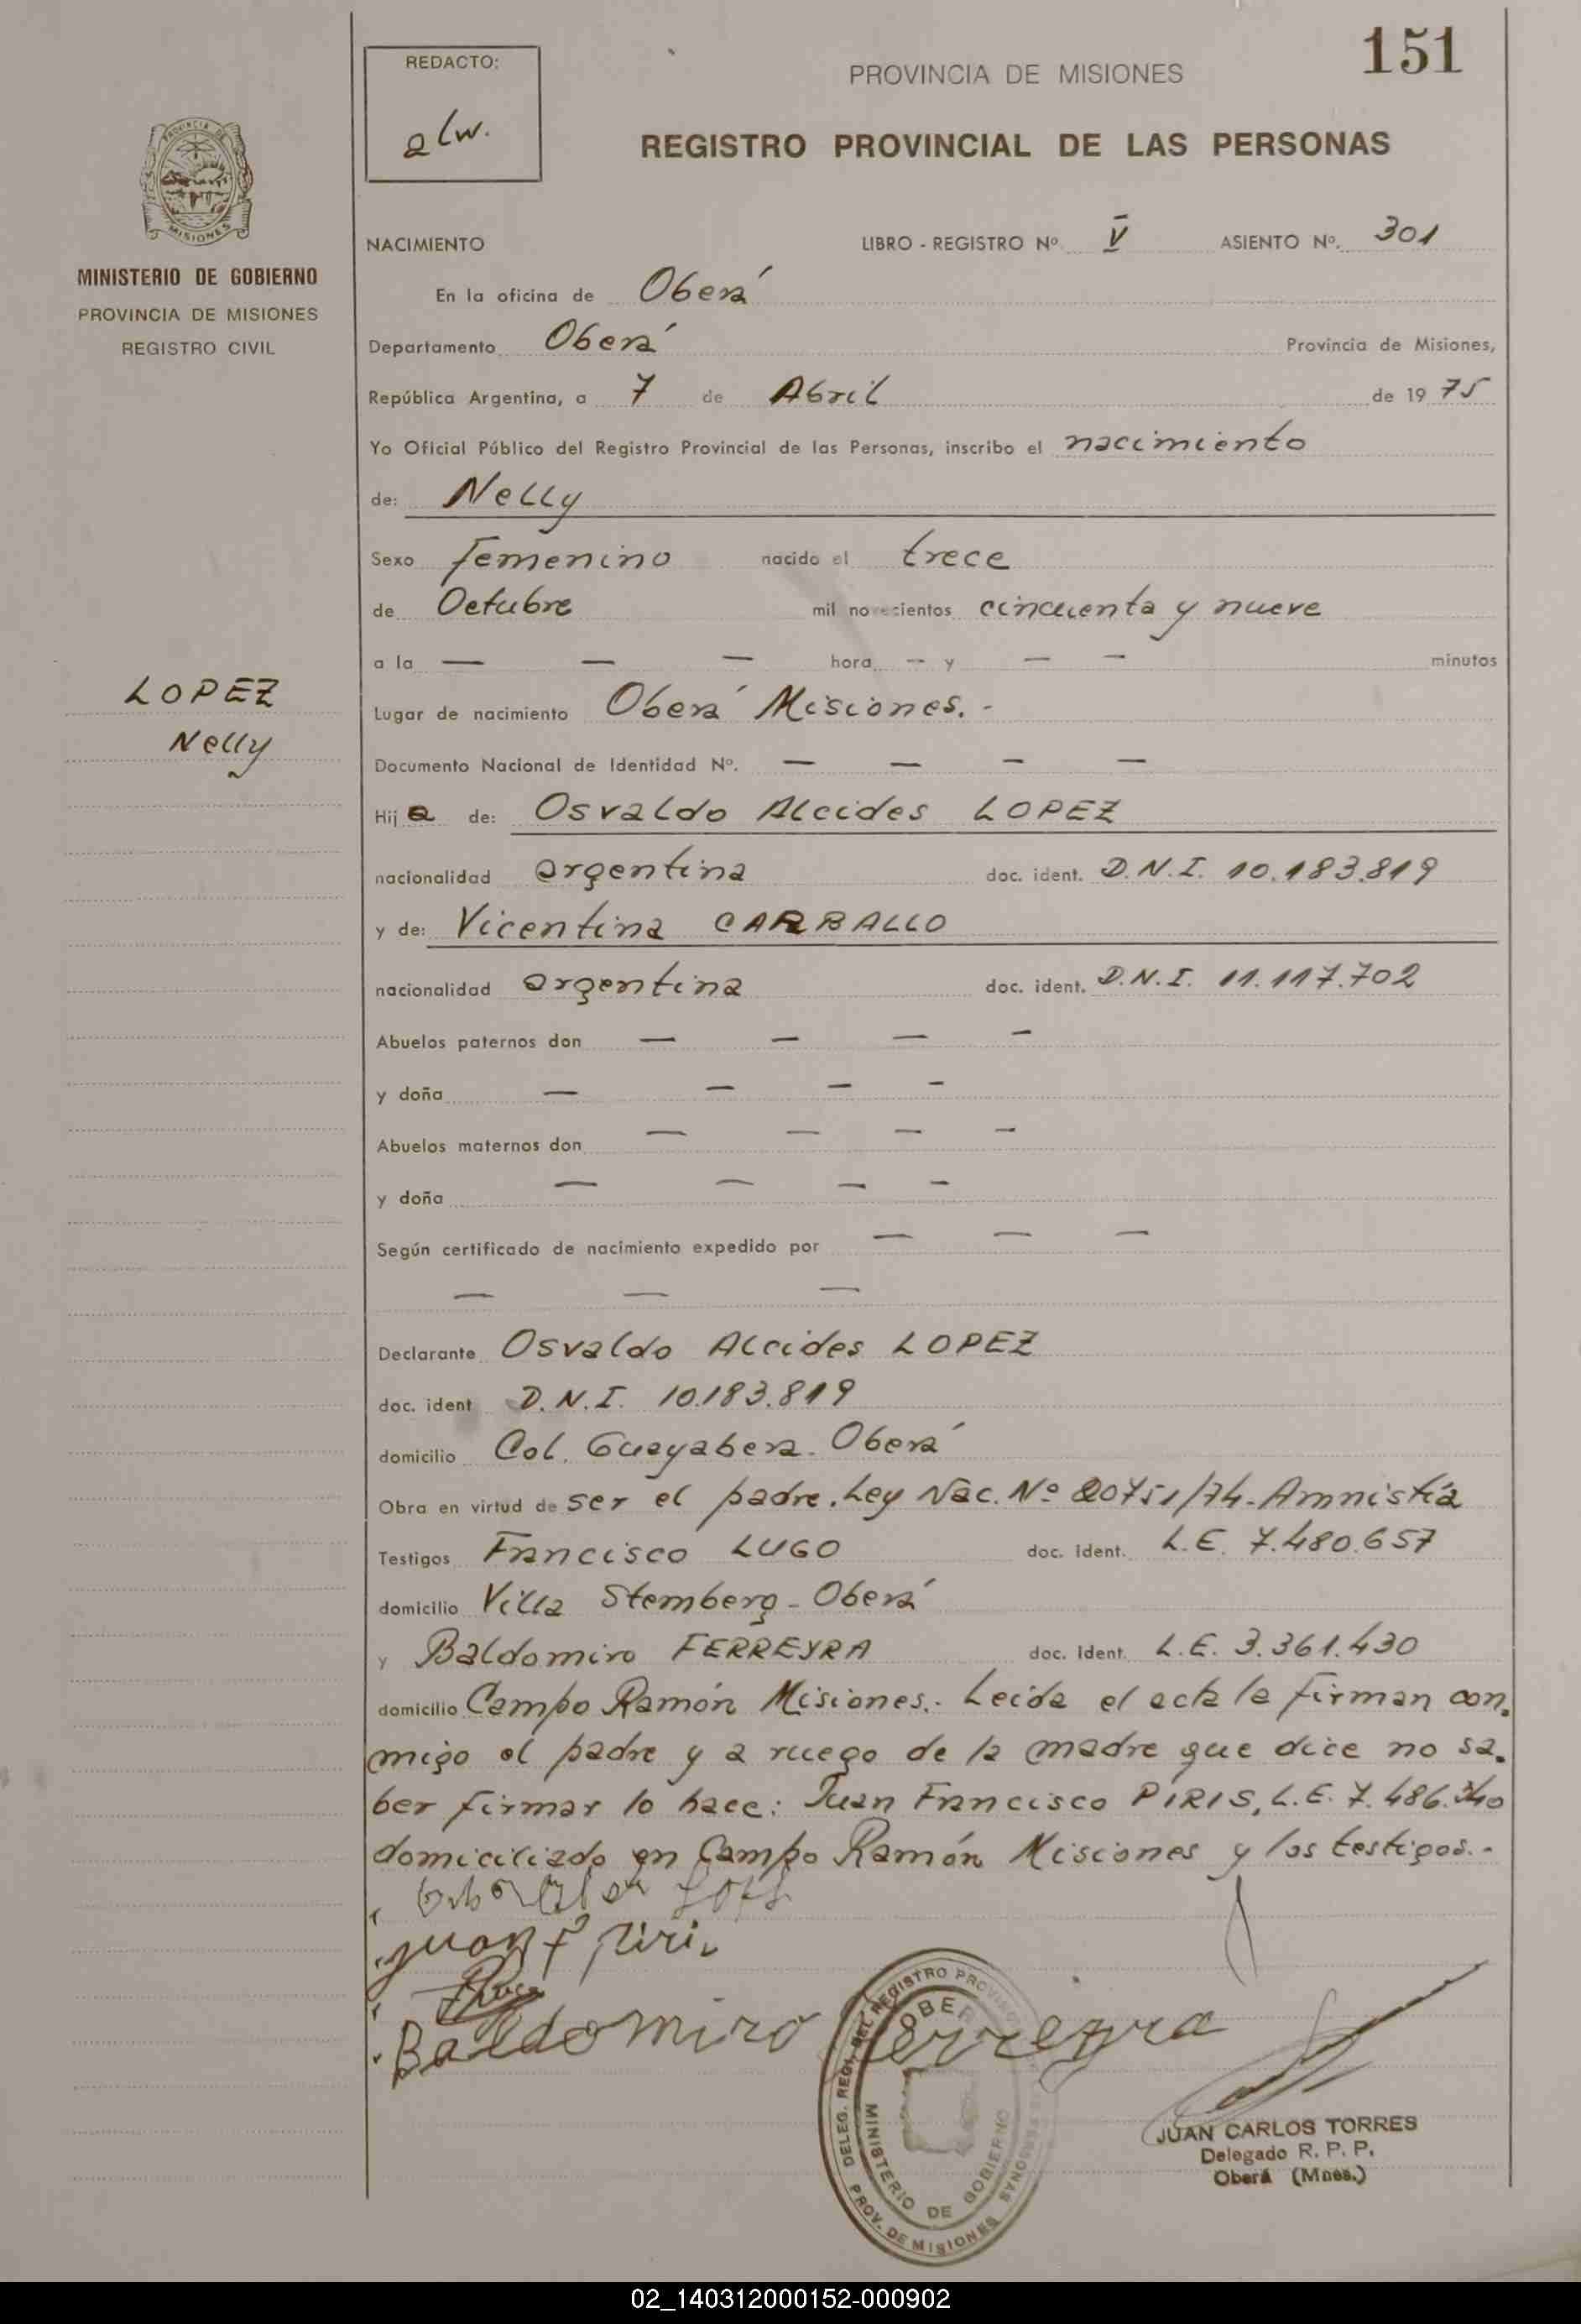 151
REDACTO:
alw.
PROVINCIA DE MISIONES
REGISTRO PROVINCIAL DE LAS PERSONAS
PROVINCIA DE
MISIONES
MINISTERIO DE GOBIERNO
PROVINCIA DE MISIONES
REGISTRO CIVIL
NACIMIENTO LIBRO - REGISTRO Nº V ASIENTO Nº. 301
En la oficina de Oberá
Departamento Oberá Provincia de Misiones,
República Argentina, a 7 de Abril de 19 75
Yo Oficial Público del Registro Provincial de las Personas, inscribo el nacimiento
de: Nelly
Sexo femenino nacido el trece
de Octubre mil novecientos cincuenta y nueve
a la — — — hora — y — — minutos
LOPEZ
Nelly
Lugar de nacimiento Oberá Misiones.-
Documento Nacional de Identidad Nº. — — — —
Hija de: Osvaldo Alcides LOPEZ
nacionalidad argentina doc. ident. D.N.I. 10.183.819
y de: Vicentina CARBALLO
nacionalidad argentina doc. ident. D.N.I. 11.117.702
Abuelos paternos don — — — —
y doña — — — —
Abuelos maternos don — — — —
y doña — — — —
Según certificado de nacimiento expedido por — — —
— — —
Declarante Osvaldo Alcides LOPEZ
doc. ident D.N.I. 10.183.819
domicilio Col. Guayabera - Oberá
Obra en virtud de ser el padre. Ley Nac. Nº 20751/74 - Amnistía
Testigos Francisco LUGO doc. ident. L.E. 7.480.657
domicilio Villa Stemberg - Oberá
y Baldomiro FERREYRA doc. ident. L.E. 3.361.430
domicilio Campo Ramón Misiones.- Leida el acta la firman con.
migo el padre y a ruego de la madre que dice no sa.
ber firmar lo hace: Juan Francisco PIRIS, L.E. 7.486.340
domiciliado en Campo Ramón Misiones y los testigos.-
Juan F Piris
Baldomiro Ferreyra
DELEG. REGI. DEL REGISTRO PROVINCIAL PERSONAS
OBERA
MINISTERIO DE GOBIERNO
PROV. DE MISIONES
JUAN CARLOS TORRES
Delegado R. P. P.
Oberá (Mnes.)
02_140312000152-000902